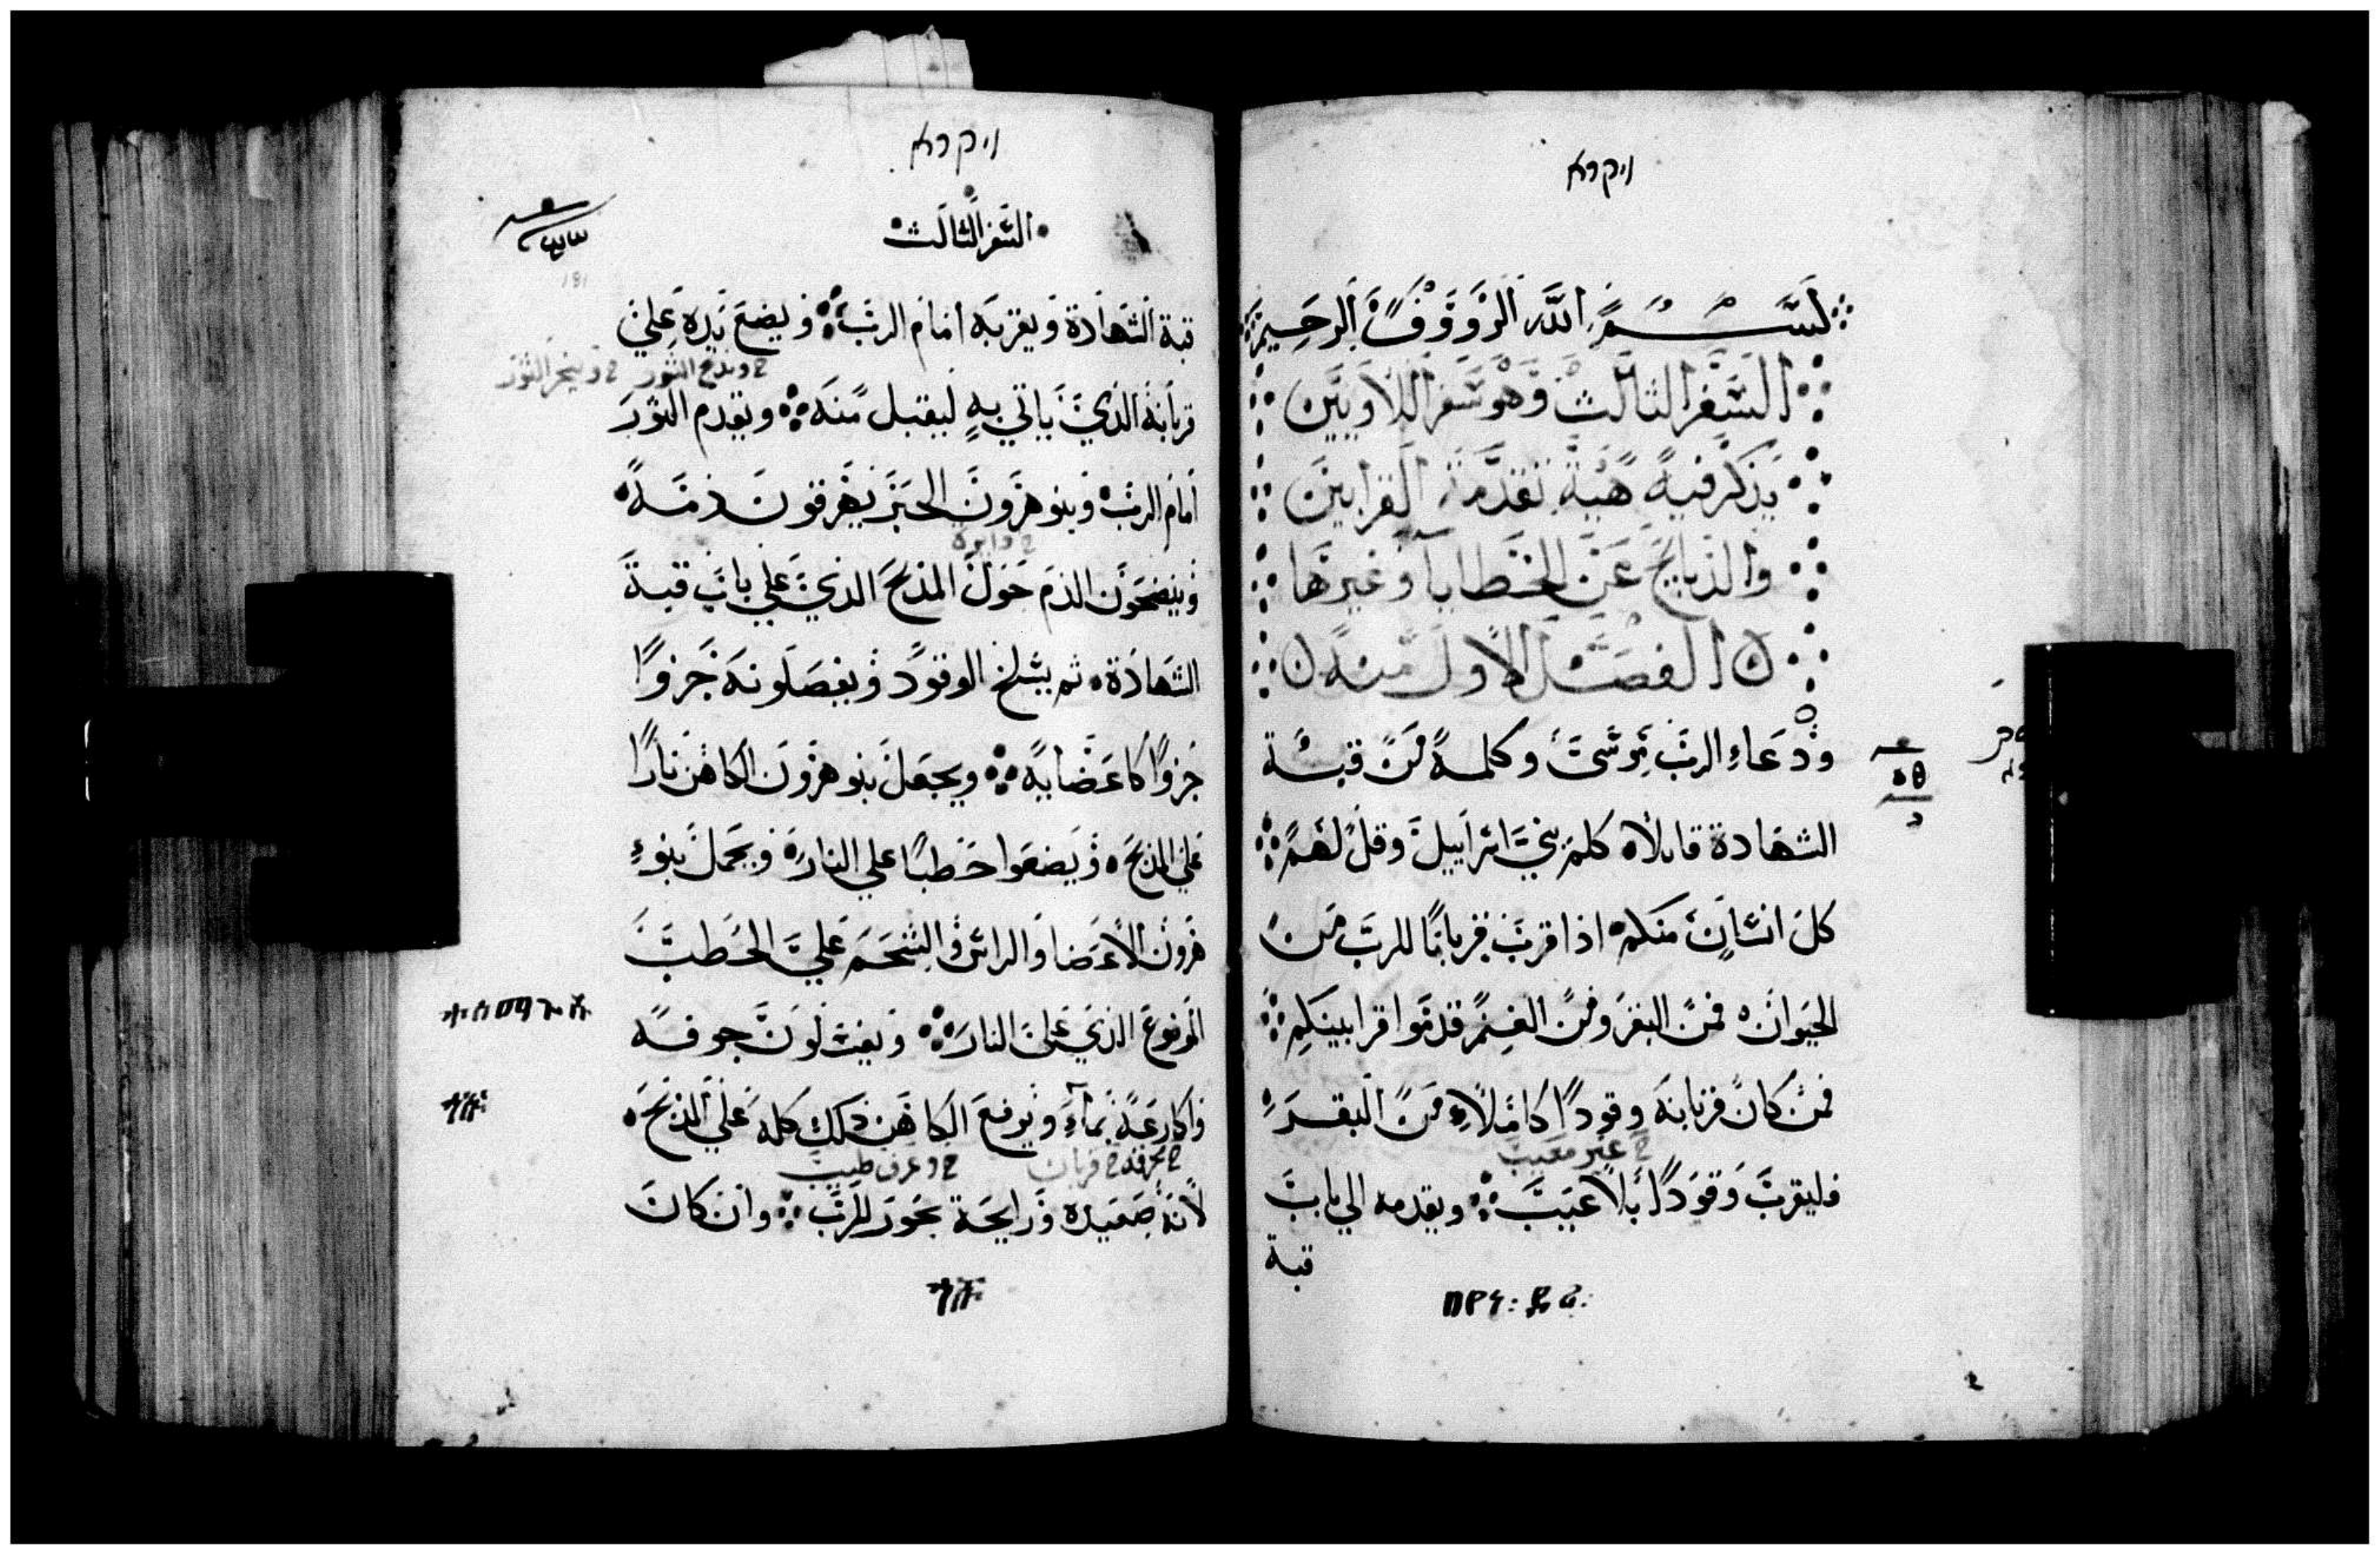 ויקרא
بسم الله الرووف الرحيم
السفر الثالث وهو سفر اللاويين
يذكر فيه هية تقدمة القرابين
والذبايح عن الخطايا وغيرها
الفصل الاول منه
ودعاء الرب موسى وكلمه من قبة
الشهادة قايلا كلم بني اسراييل وقل لهم
كل انسان منكم اذا قرب قربانا للرب من
الحيوان فمن البقر ومن الغنم قدموا قرابينكم
فمن كان قربانه وقودا كاملا من البقر
غير معيب
فليقرب وقودا بلا عيب ويقدمه الي باب
قبة
ויקרא
السفر الثالث
181
قبة الشهادة ويقربه امام الرب ويضع يده علي
ويذبح الثور وينحر الثور
قربانه الذي ياتي به ليقبل منه ويقدم الثور
امام الرب وبنو هرون الحبر يهرقون دمه
دايره
وينضحون الدم حول المذبح الذي علي باب قبة
الشهادة ثم يسلخ الوقود ويفصلونه جزوا
جزوا كاعضايه ويجعل بنو هرون الكاهن نارا
علي المذبح ويضعوا حطبا علي النار ويجمل بنو
هرون الاعضا والراس والشحم علي الحطب
الموضوع الذي علي النار ويغسلون جوفه
واكارعه بماء ويرفع الكاهن ذلك كله علي المذبح
قربان وعرف طيب
لانه صعيده ورايحة بخور للرب وان كان